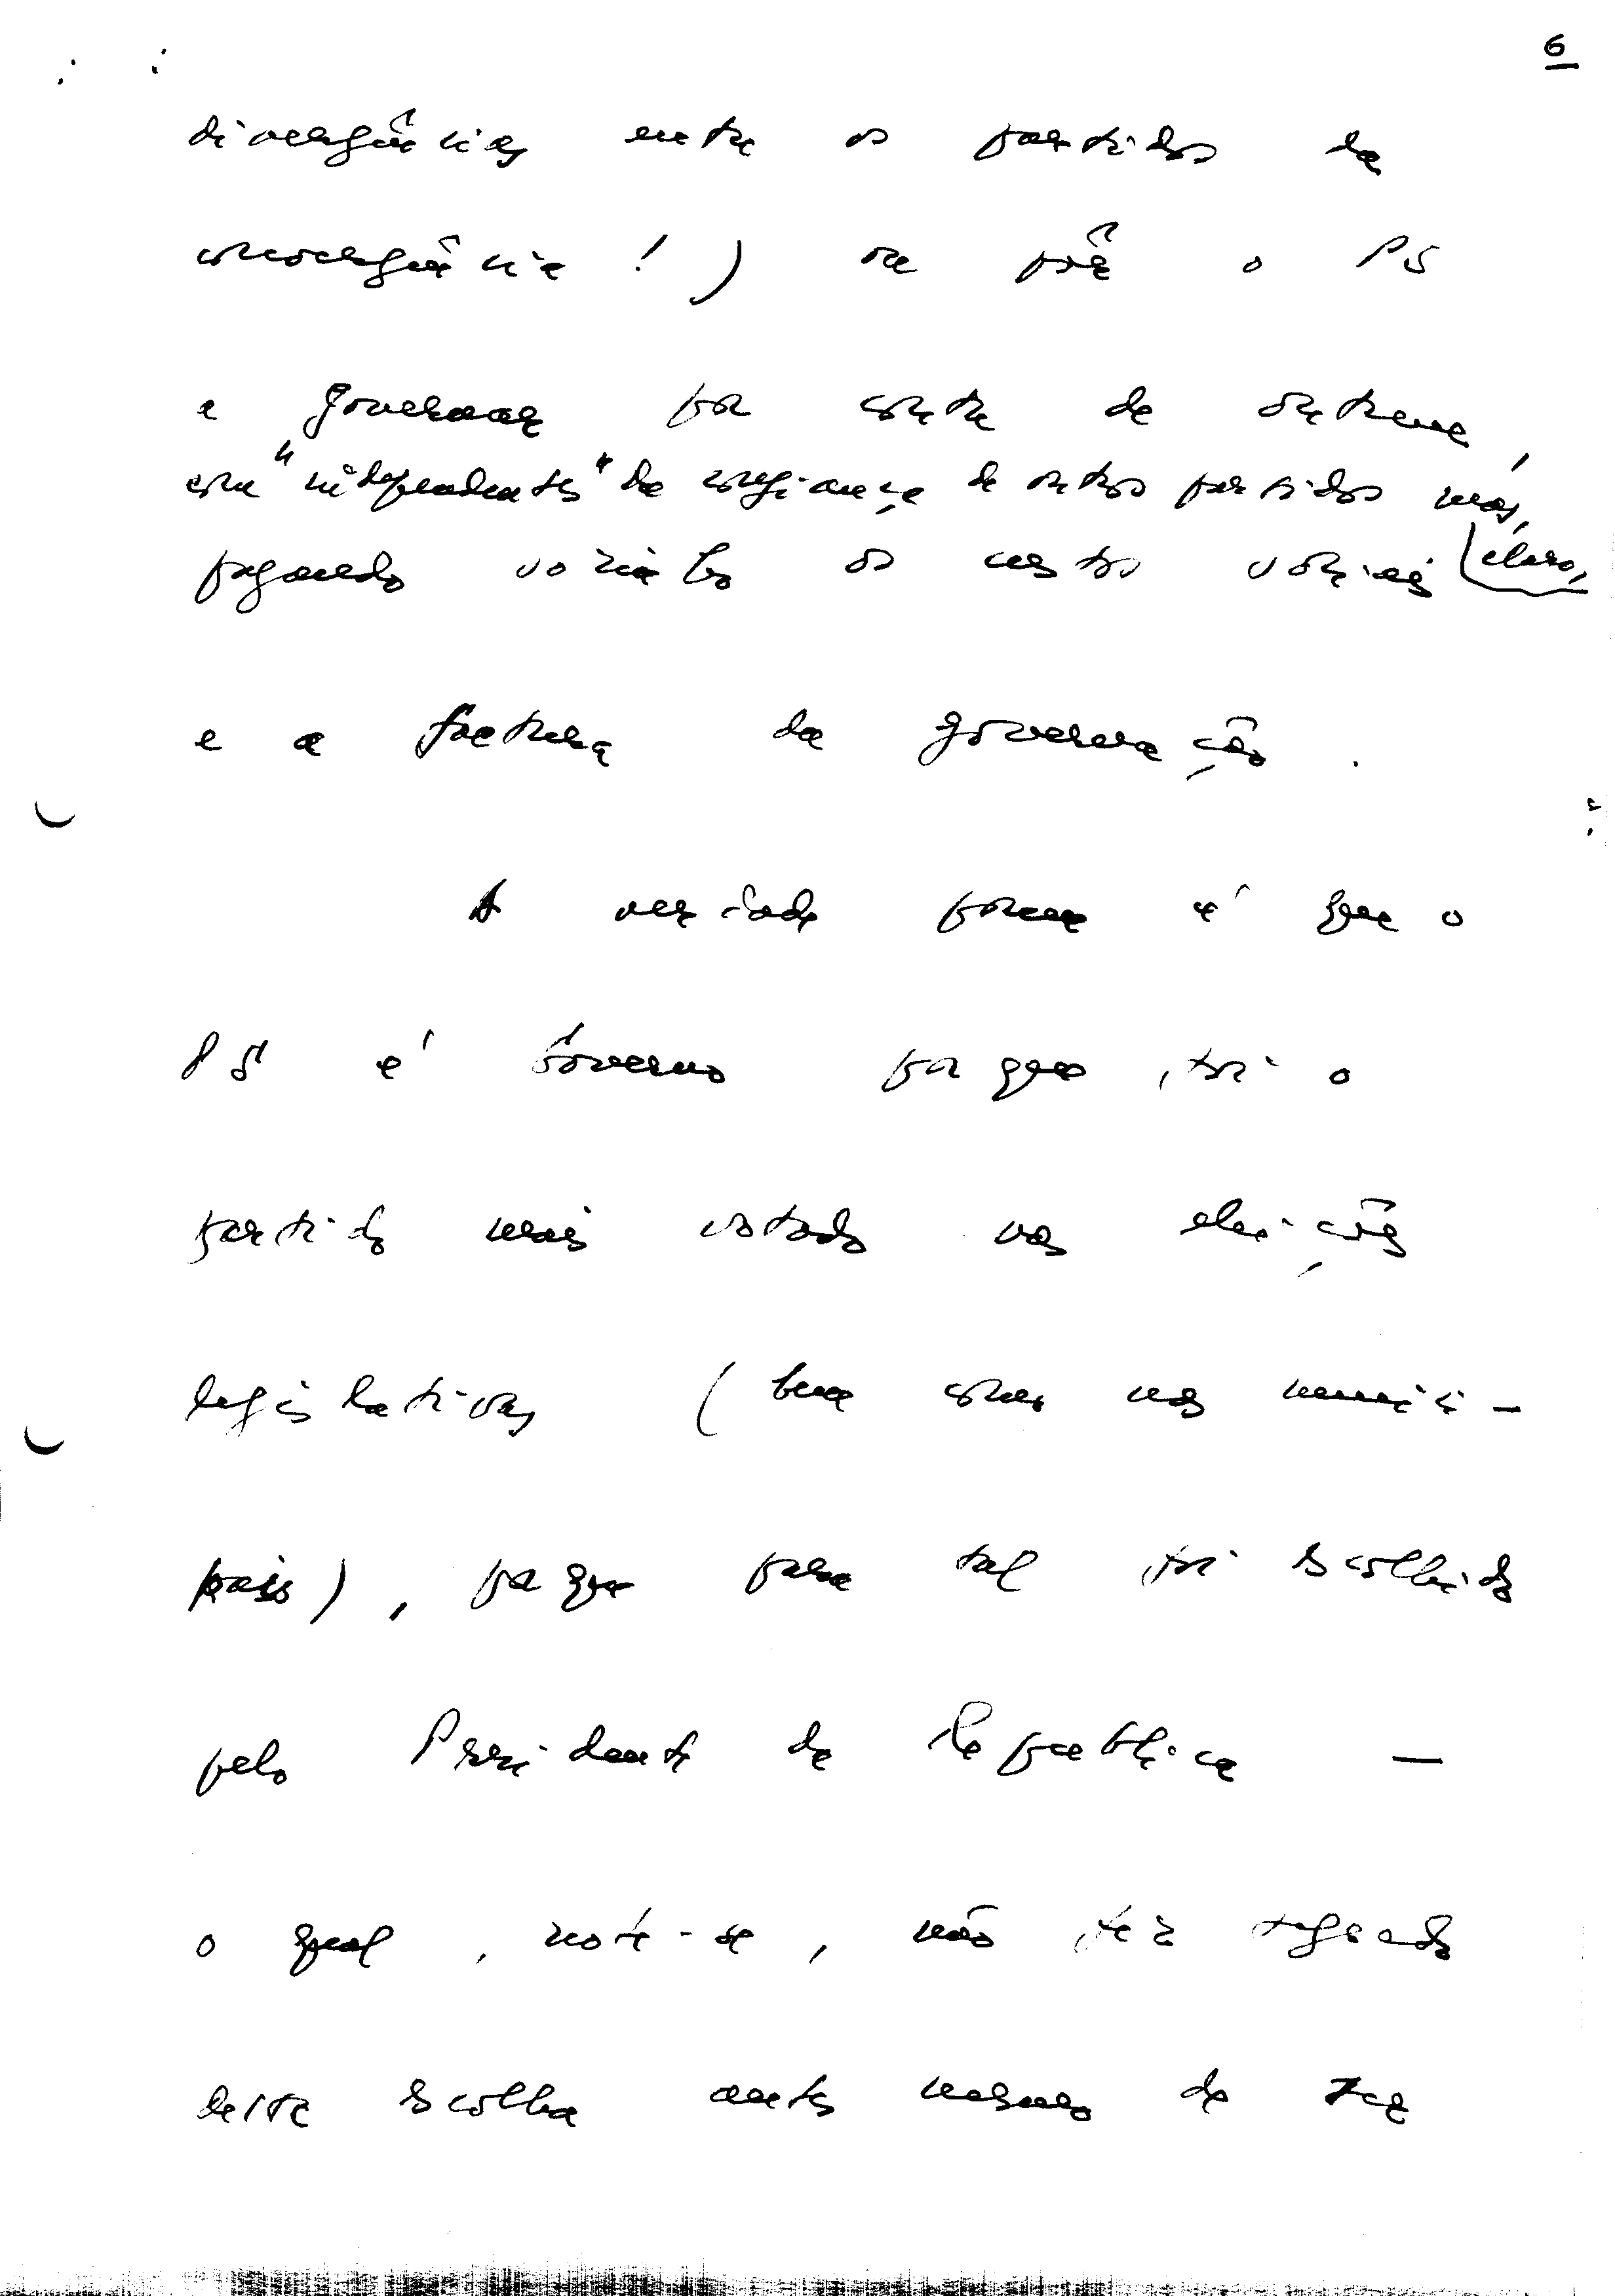 6
divergências entre os partidos da
convergência!) ou pôr o PS
a governar por conta de outrem,
com "independentes" da confiança de outros partidos mas,
pagando sozinho os custos sociais claro,
e a factura da governação.
A verdade porém é que o
PS é Governo porque foi o
partido mais votado nas eleições
legislativas (bem como nas munici-
pais), porque para tal foi escolhido
pelo Presidente da República —
o qual, note-se, não fez segredo
desta escolha antes mesmo de